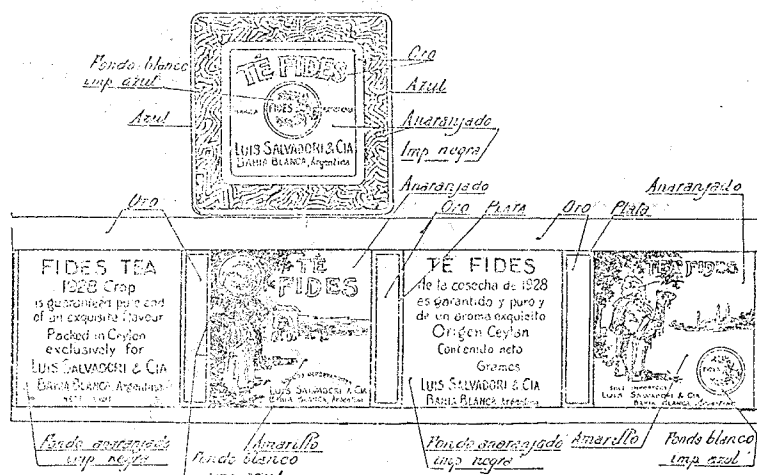 Oro
Fondo blanco
imp azul
TÉ FIDES
Azul
Azul
MARCA
FIDES
Anaranjado
Imp negra
LUIS SALVADORI & CIA
BAHIA BLANCA, Argentina
Oro
Anaranjado
Oro
PLATA
Oro
Plata
Anaranjado
FIDES TEA
1928 Crop
is guaranteed pure and
of an exquisite flavour
Packed in Ceylon
exclusively for
LUIS SALVADORI & CIA
BAHIA BLANCA, Argentina
TÉ
FIDES
LUIS SALVADORI & CIA
BAHIA BLANCA, Argentina
TÉ FIDES
de la cosecha de 1928
es garantido y puro y
de un aroma exquisito
Origen Ceylan
Contenido neto
Gramos
LUIS SALVADORI & CIA
BAHIA BLANCA, Argentina
TEA FIDES
FIDES
LUIS SALVADORI & CIA
BAHIA BLANCA, Argentina
Fondo anaranjado
imp negra
Fondo blanco
Amarillo
Fondo anaranjado
imp negra
Amarillo
Fondo blanco
imp azul